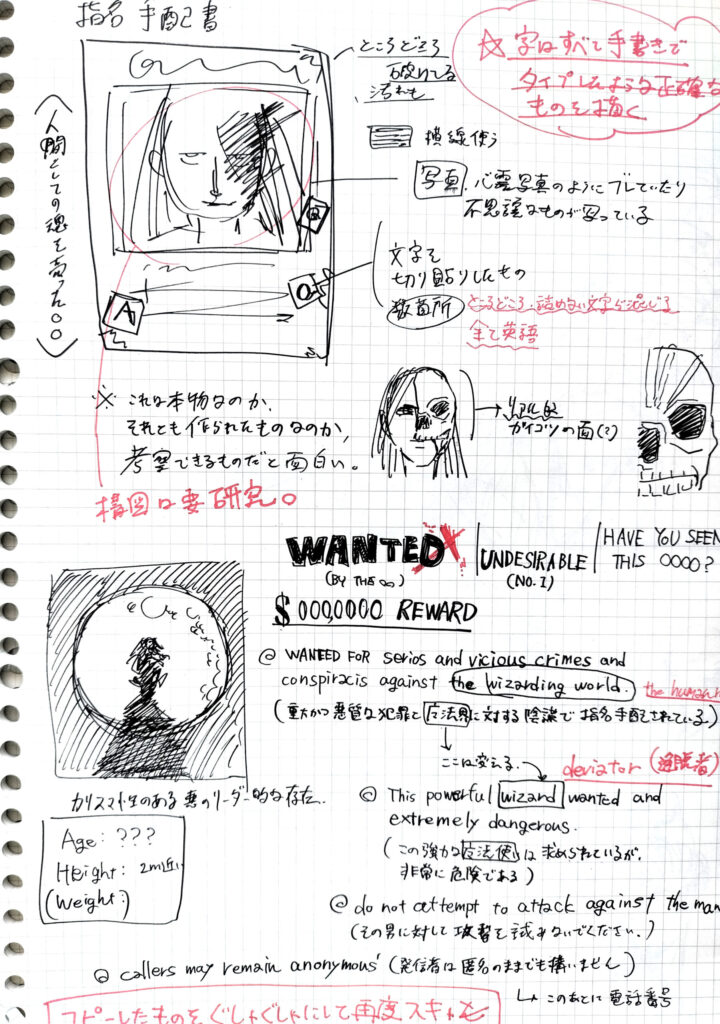 指名手配書
ところどころ
破れてる
汚れも
☆字はすべて手書きで
タイプしたような正確な
ものを描く
横線使う
写真. 心霊写真のようにブレていたり
不思議なものが写っている
〈人間としての魂を売った〇〇〉
文字を
切り貼りしたもの
数箇所
ところどころ、読めない文字が混じる
全て英語
A
※ これは本物なのか、
それとも作られたものなのか、
考察できるものだと面白い。
構図は要研究。
リアル的
ガイコツの面(?)
WANTED
(BY THE ∞)
UNDESIRABLE
(NO.1)
HAVE YOU SEEN
THIS OOOO?
$ 000,0000 REWARD
@ WANTED FOR serios and vicious crimes and
conspiracis against the wizarding world.
the human
(重大かつ悪質な犯罪と魔法界に対する陰謀で指名手配されている)
ここは変える.
deviator (逸脱者)
カリスマ性のある悪のリーダー的な存在.
Age: ???
Height: 2m近い
(Weight:)
@ This powerful wizard wanted and
extremely dangerous.
(この強力な魔法使いは求められているが,
非常に危険である)
@ do not attempt to attack against the man
(その男に対して攻撃を試みないでください.)
@ callers may remain anonymous' (発信者は匿名のままでも構いません)
↳ このあとに電話番号
コピーしたものをぐしゃぐしゃにして再度スキャン